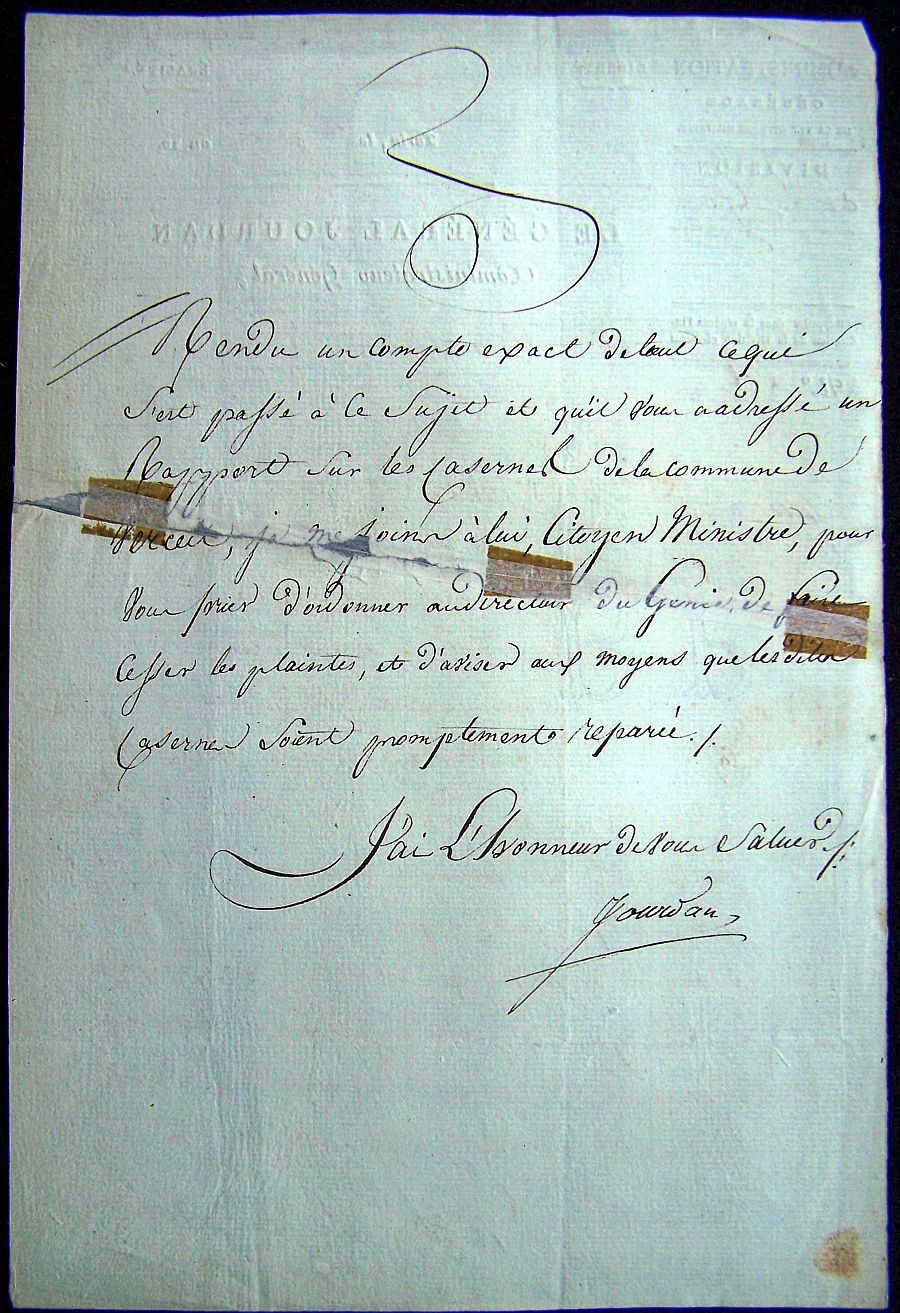 Rendu un compte exact de tout ce qui
s'est passé à ce sujet et qu'il vous a adressé un
Rapport sur les casernes de la commune de
Verceil, je me joins à lui, Citoyen Ministre, pour
vous prier d'ordonner au directeur du Genie, de faire
cesser les plaintes, et d'aviser aux moyens que les dites
casernes soient promptement reparée ./.
J'ai L'honneur de vous Saluer ./.
Jourdan
LE GÉNÉRAL JOURDAN
Administrateur Général,
DIVISION